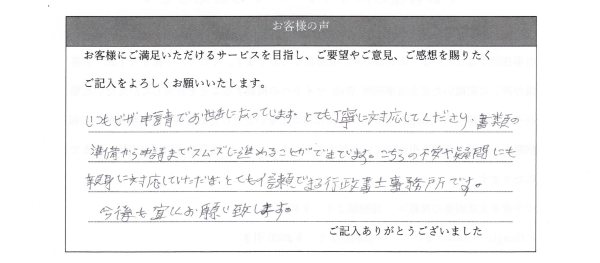 お客様の声
お客様にご満足いただけるサービスを目指し、ご要望やご意見、ご感想を賜りたく
ご記入をよろしくお願いいたします。
いつもビザ申請でお世話になっています。とても丁寧に対応してくださり、書類の
準備から申請までスムーズに進めることができています。こちらの不安や疑問にも
親身に対応していただき、とても信頼できる行政書士事務所です。
今後も宜しくお願い致します。
ご記入ありがとうございました